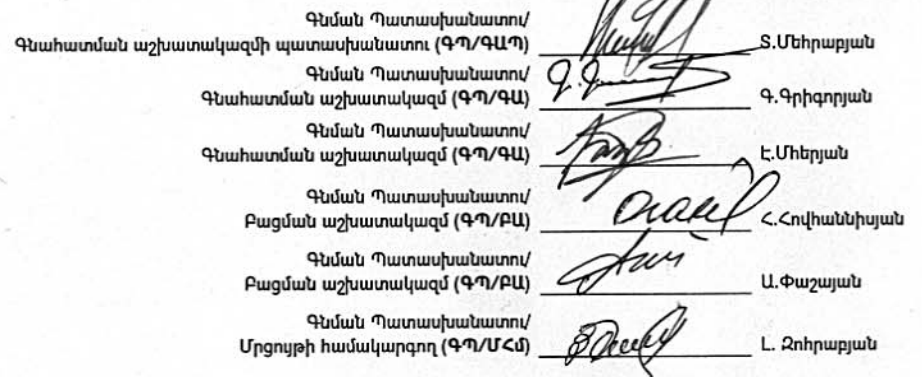 Գնման Պատասխանատու/
Գնահատման աշխատակազմի պատասխանատու (ԳՊ/ԳԱՊ) Տ.Մեհրաբյան
Գնման Պատասխանատու/
Գնահատման աշխատակազմ (ԳՊ/ԳԱ) Գ.Գրիգորյան
Գնման Պատասխանատու/
Գնահատման աշխատակազմ (ԳՊ/ԳԱ) Է.Մհերյան
Գնման Պատասխանատու/
Բացման աշխատակազմ (ԳՊ/ԲԱ) Հ.Հովհաննիսյան
Գնման Պատասխանատու/
Բացման աշխատակազմ (ԳՊ/ԲԱ) Ա.Փաշայան
Գնման Պատասխանատու/
Մրցույթի համակարգող (ԳՊ/ՄՀմ) Լ. Զոհրաբյան